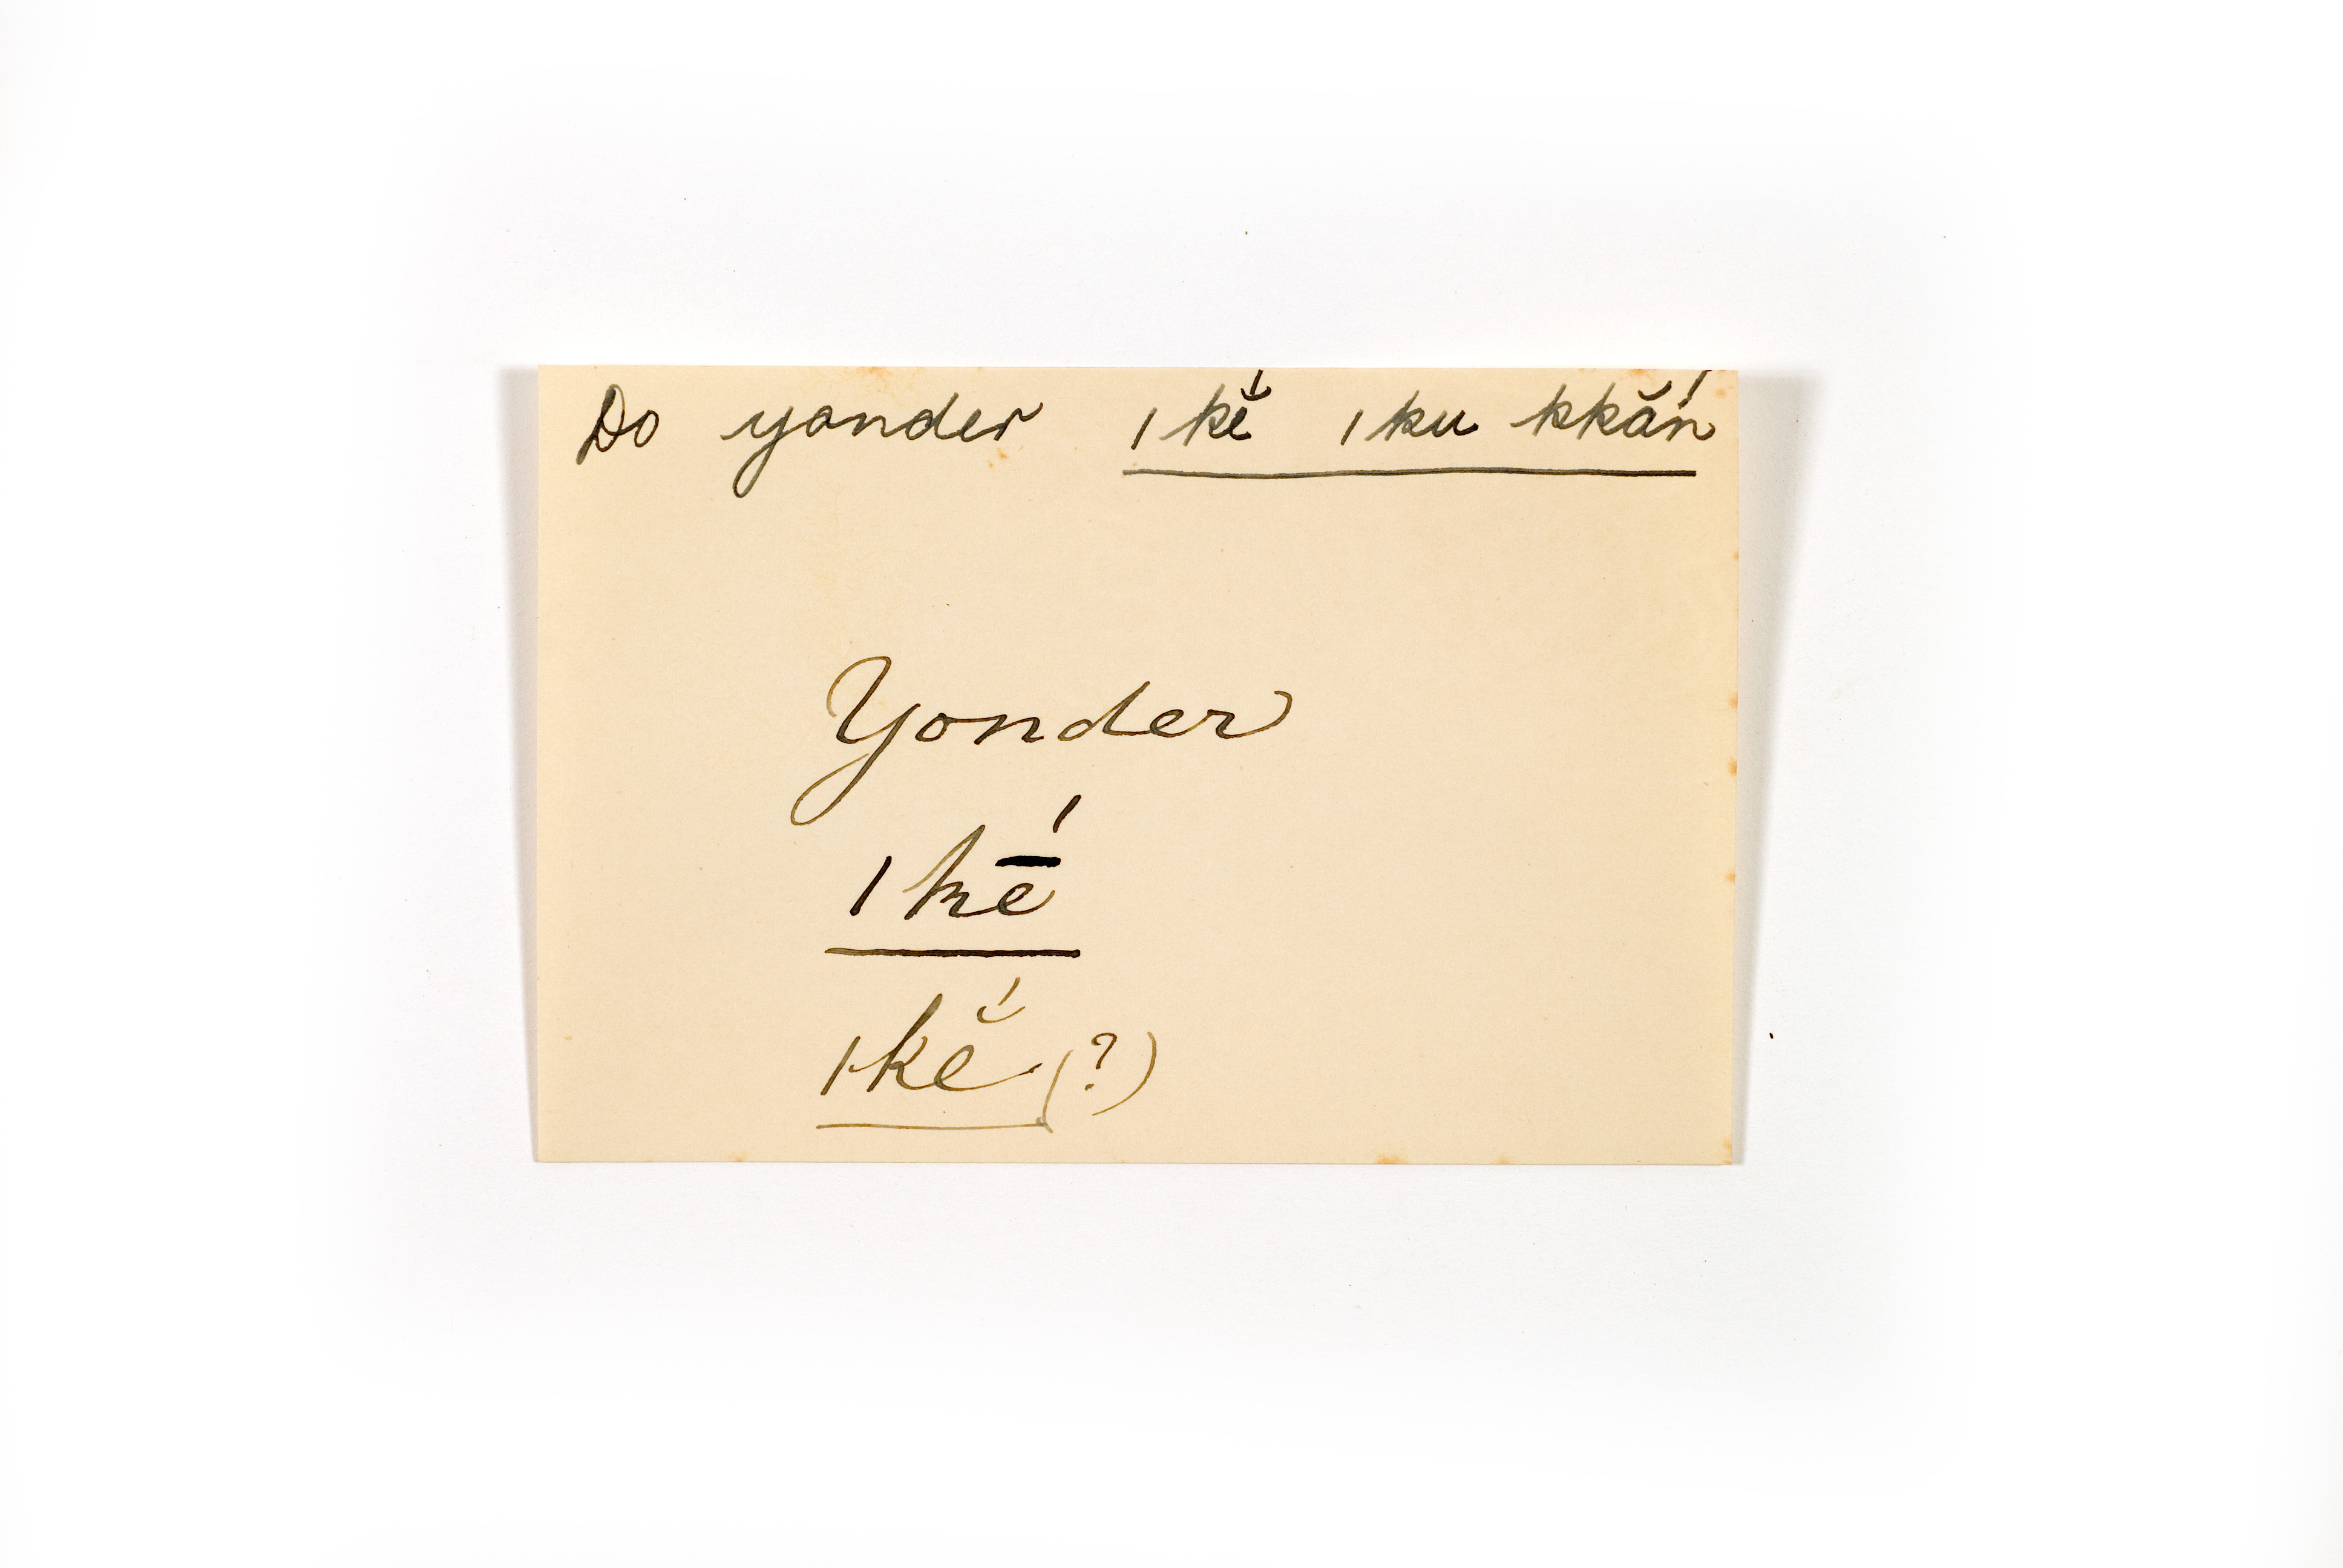 Do yonder ıkĕ́ ıku kkăń
Yonder
ıkḗ
ıkĕ́ (?)